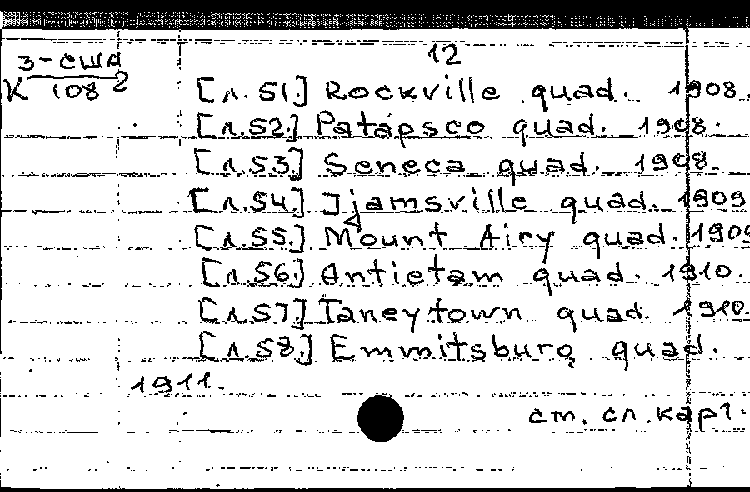 12
3-сша
К 108 2
[л.51.] Rockville quad. 1908.
[л.52.] Patapsco quad. 1908.
[л.53.] Seneca quad. 1908.
[л.54.] Ijamsville quad. 1909
[л.55.] Mount Airy quad. 1909
[л.56.] Antietam quad. 1910.
[л.57] Taneytown quad 1910.
[л.58.] Emmitsburg quad.
1911.
см. сл. карт.